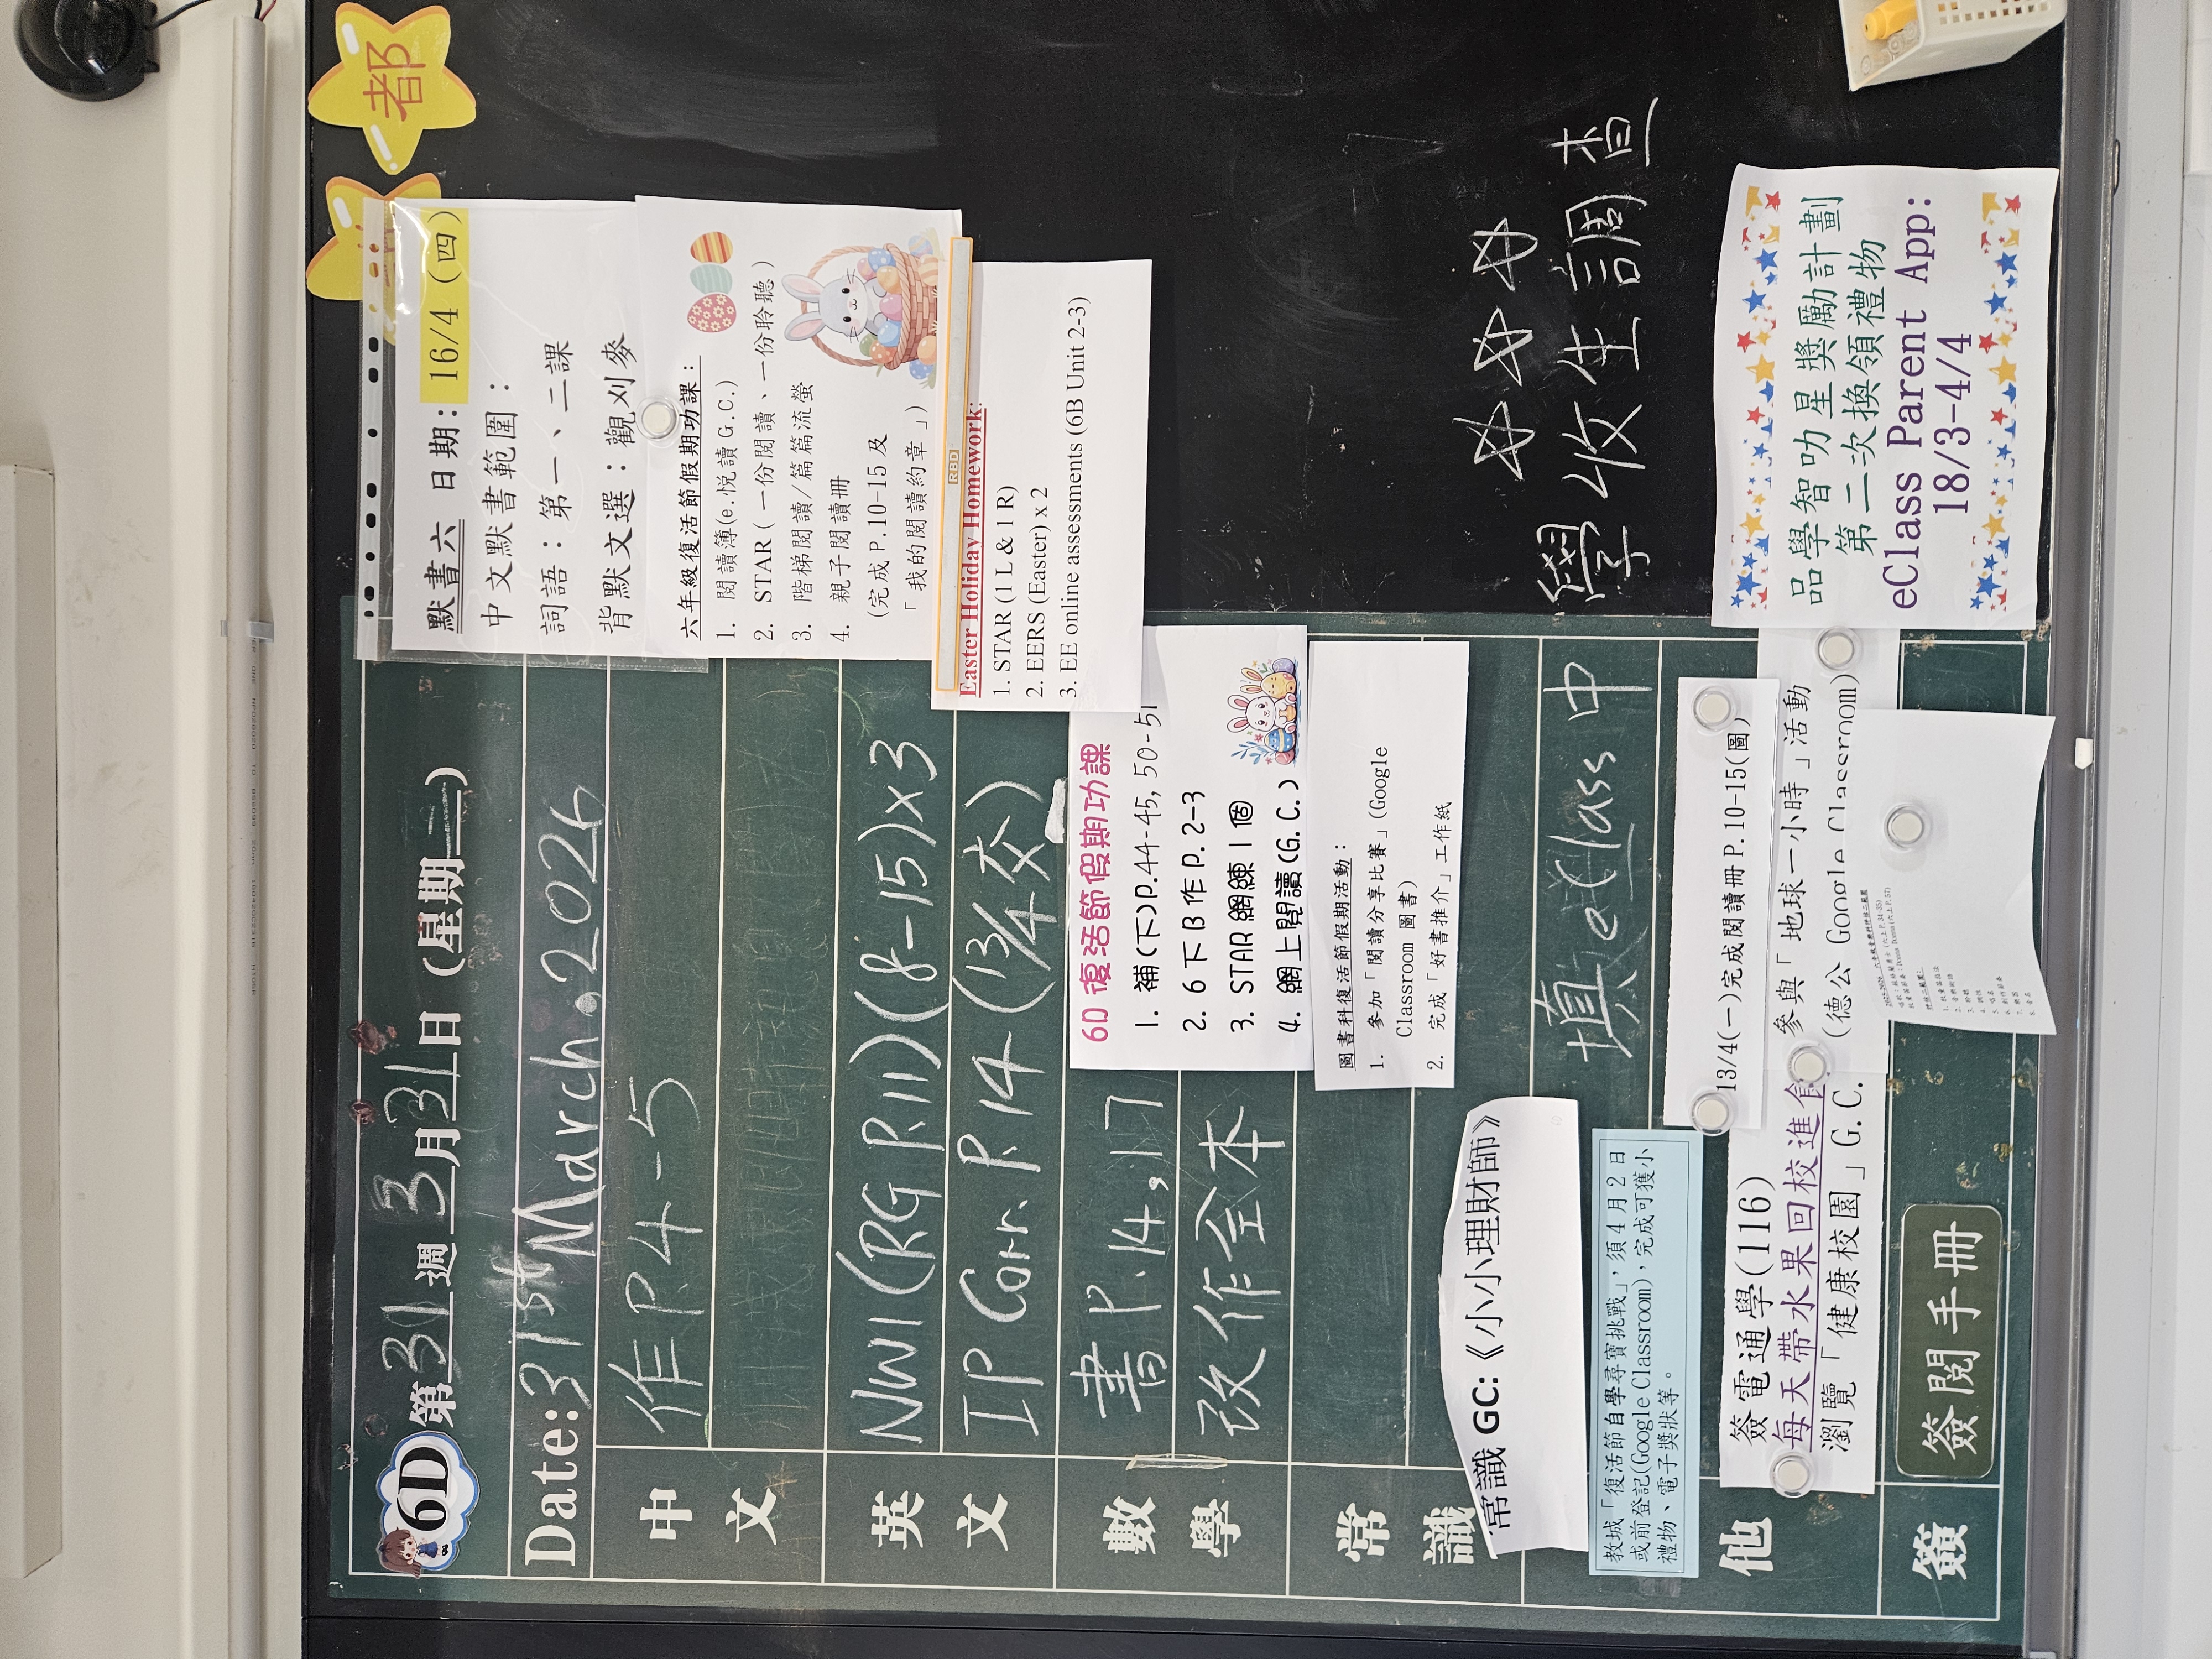 都
6D 第31週 3月31日 (星期二)
Date: 31st March, 2026
中文
作 P.4-5
英文
NW1 (RG P.11) (8-15)x3
IP Corr. P.14 (13/4交)
數學
書 P.14,17
改作全本
常識
常識 GC:《小小理財師》
填 eClass 中
學 收生調查
他
教城「復活節自學尋寶挑戰」, 須 4 月 2 日
或前登記(Google Classroom), 完成可獲小
禮物、電子獎狀等。
簽電通學(116)
每天帶水果回校進食
瀏覽「健康校園」G.C.
13/4(一)完成閱讀冊 P.10-15(圖)
參與「地球一小時」活動
(德公 Google Classroom)
簽
簽閱手冊
默書六 日期: 16/4 (四)
中文默書範圍:
詞語:第一、二課
背默文選:觀刈麥
六年級復活節假期功課:
1. 閱讀簿(e.悅讀 G.C.)
2. STAR (一份閱讀、一份聆聽)
3. 階梯閱讀/篇篇流螢
4. 親子閱讀冊
(完成 P.10-15 及
「我的閱讀約章」)
RBD
Easter Holiday Homework:
1. STAR (1 L & 1 R)
2. EERS (Easter) x 2
3. EE online assessments (6B Unit 2-3)
6D 復活節假期功課
1. 補(下)P.44-45, 50-51
2. 6下B作 P.2-3
3. STAR 網練 1 個
4. 網上閱讀 (G.C.)
圖書科復活節假期活動:
1. 參加「閱讀分享比賽」(Google
Classroom 圖書)
2. 完成「好書推介」工作紙
品學智叻星獎勵計劃
第二次換領禮物
eClass Parent App:
18/3-4/4